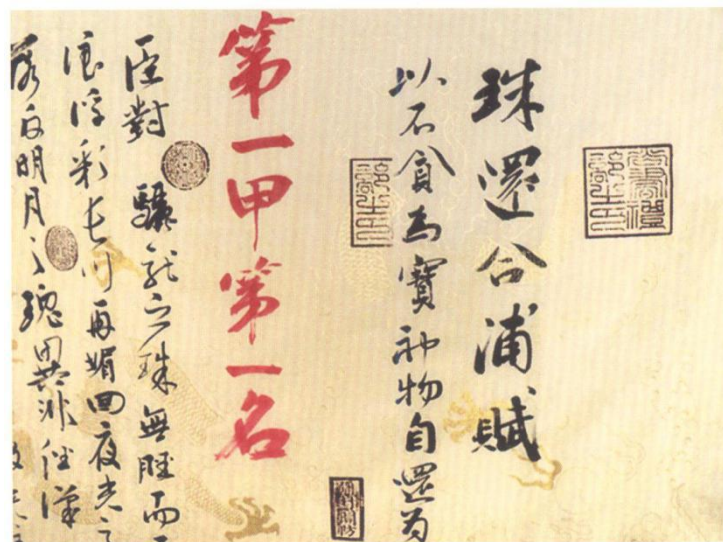 珠還合浦賦
以不貪為寶神物自還為
第一甲第一名
臣對 驪龍之珠無脛而
浪浮彩長川再媚回夜光之
明月之瑰異非經漢